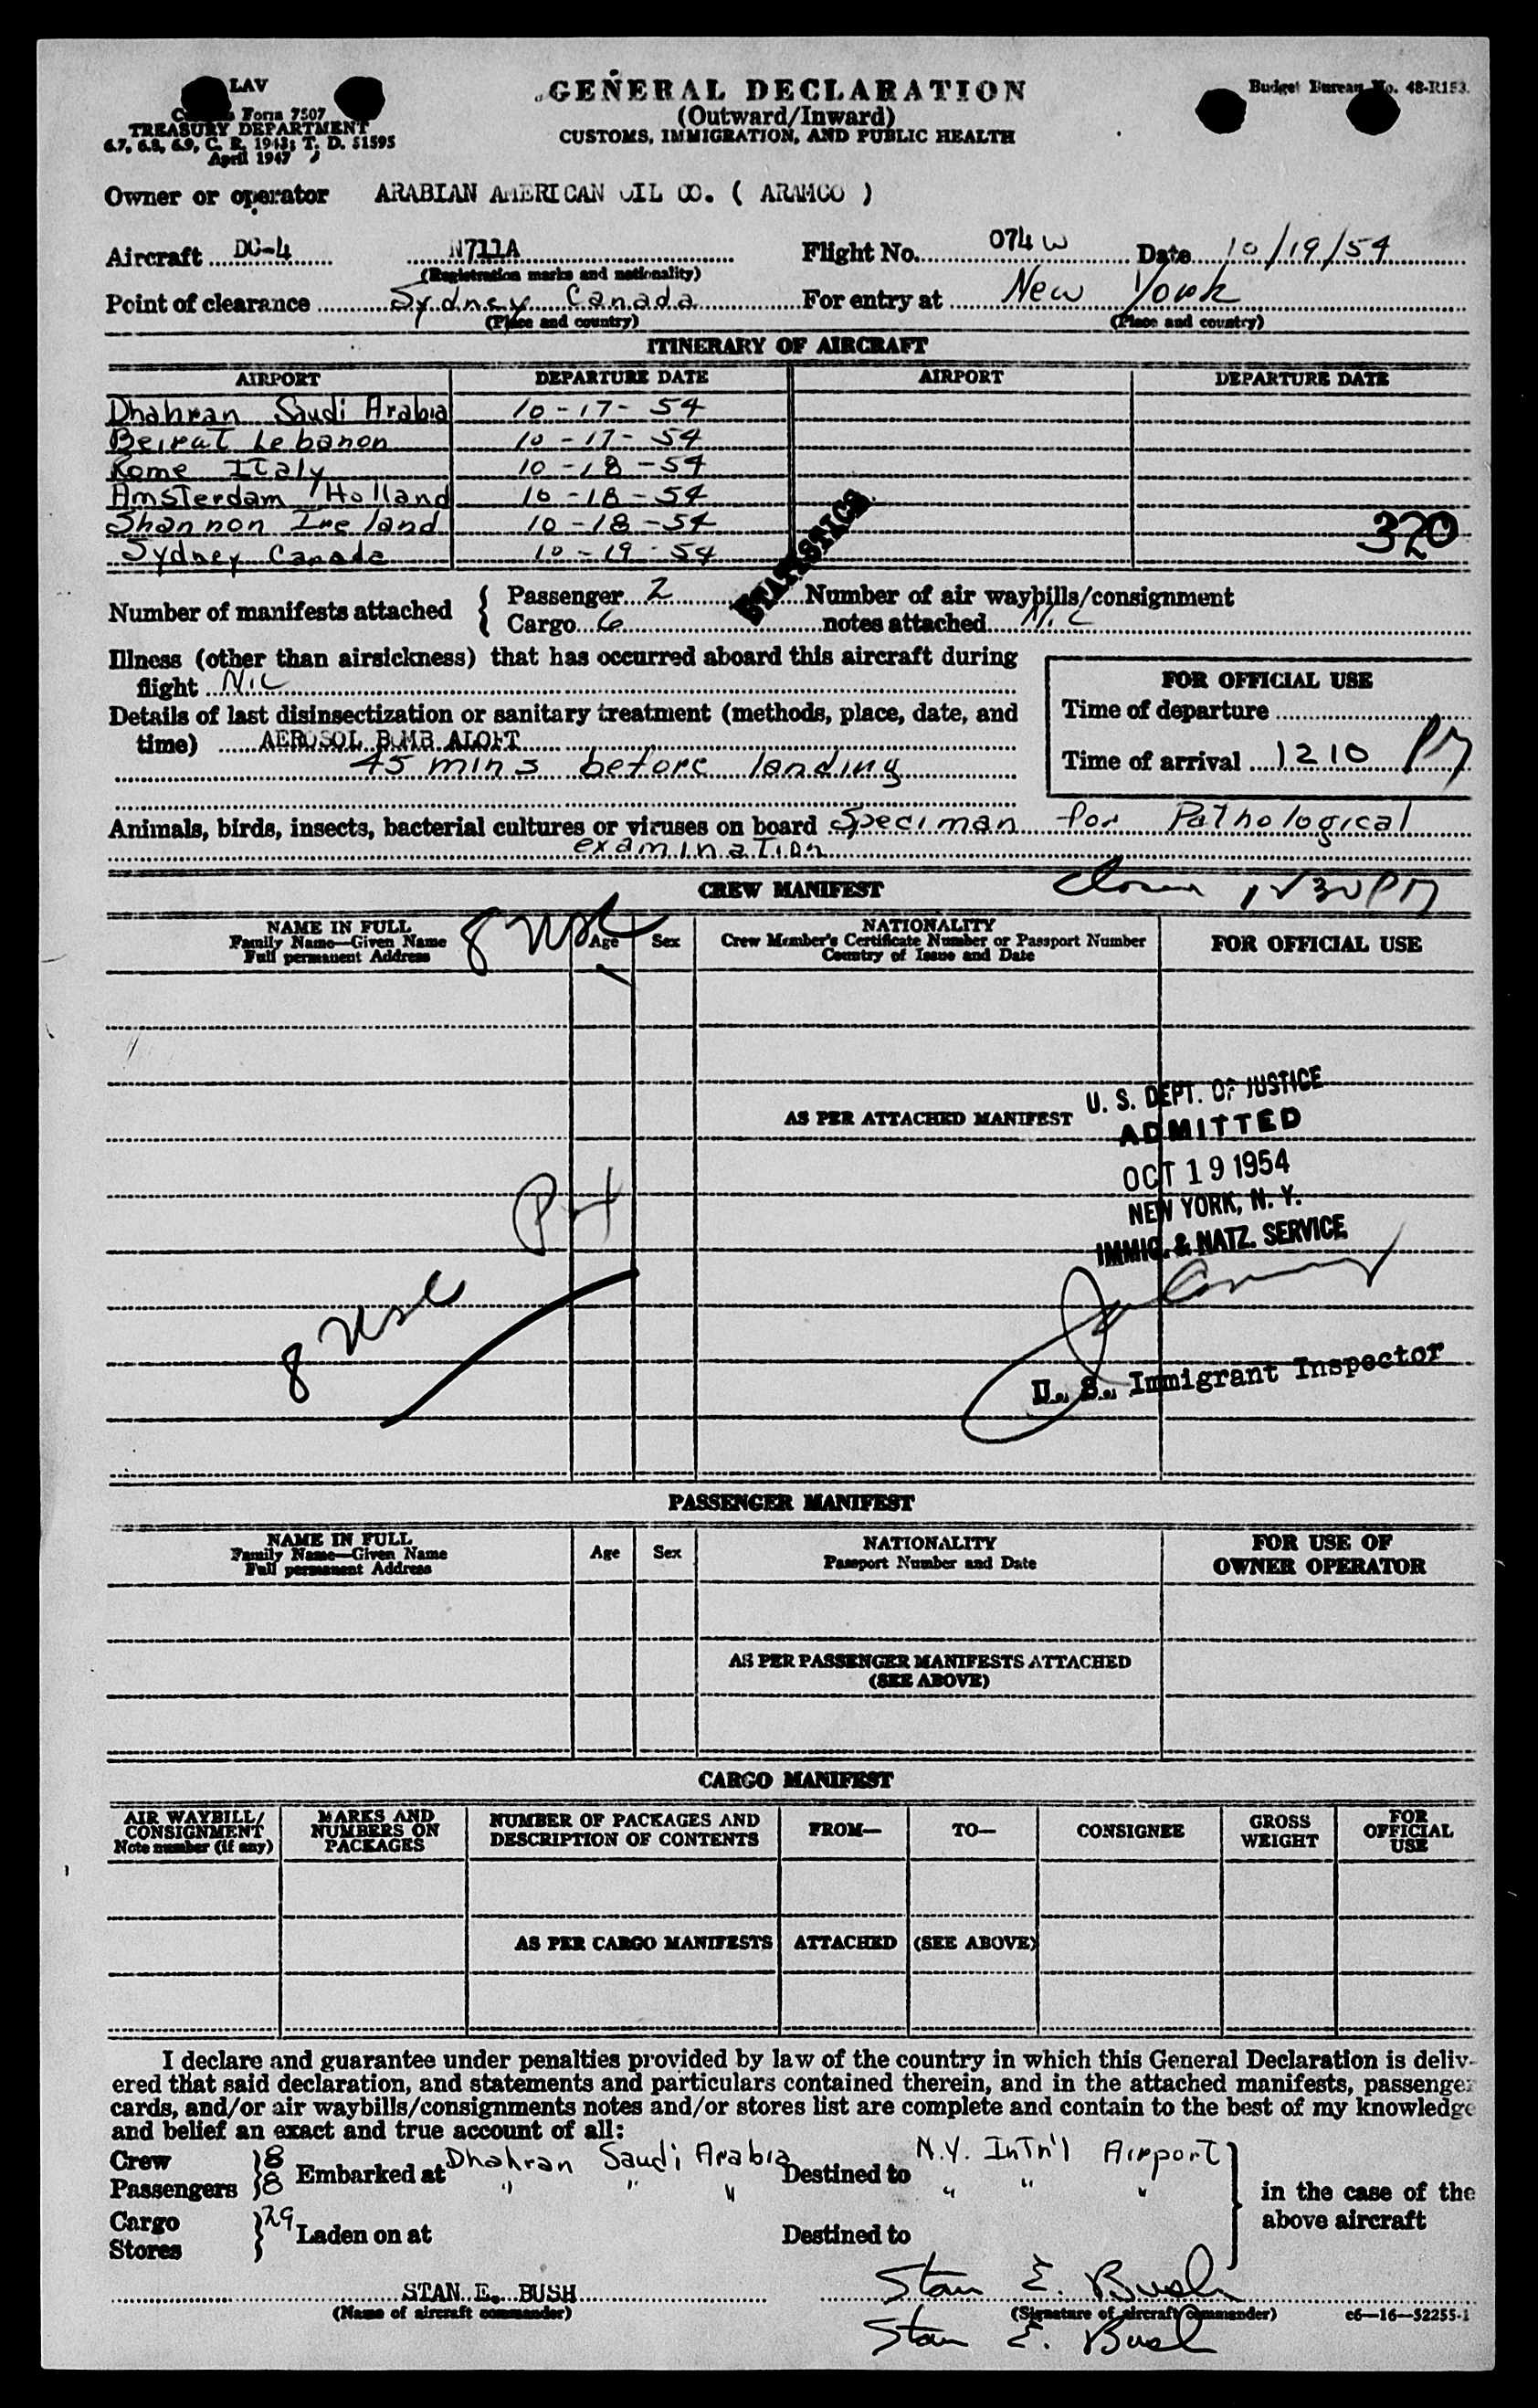 LAV
Form 7507
TREASURY DEPARTMENT
6.7, 6.8, 6.9, C. R. 1943; T. D. 51595
April 1947
GENERAL DECLARATION
(Outward/Inward)
CUSTOMS, IMMIGRATION, AND PUBLIC HEALTH
Budget Bureau No. 48-R153.
Owner or operator ARABIAN AMERICAN OIL CO. ( ARAMCO )
Aircraft DC-4 N711A Flight No. 074 W Date 10/19/54
(Registration marks and nationality)
Point of clearance Sydney Canada For entry at New York
(Place and country) (Place and country)
ITINERARY OF AIRCRAFT
AIRPORT DEPARTURE DATE AIRPORT DEPARTURE DATE
Dhahran Saudi Arabia 10-17-54
Beirut Lebanon 10-17-54
Rome Italy 10-18-54
Amsterdam Holland 10-18-54
Shannon Ireland 10-18-54
320
Sydney Canada 10-19-54
STATISTICS
Number of manifests attached { Passenger 2 Number of air waybills/consignment
Cargo 6 notes attached Nil
Illness (other than airsickness) that has occurred aboard this aircraft during
flight Nil
Details of last disinsectization or sanitary treatment (methods, place, date, and
time) AEROSOL BOMB ALOFT
45 mins before landing
FOR OFFICIAL USE
Time of departure
Time of arrival 1210 PM
Animals, birds, insects, bacterial cultures or viruses on board Speciman for Pathological
examination
CREW MANIFEST
1230 PM
NAME IN FULL
Family Name—Given Name
Full permanent Address
8 usc
Age Sex
NATIONALITY
Crew Member's Certificate Number or Passport Number
Country of Issue and Date
FOR OFFICIAL USE
AS PER ATTACHED MANIFEST
U. S. DEPT. OF JUSTICE
ADMITTED
OCT 19 1954
NEW YORK, N. Y.
IMMIG. & NATZ. SERVICE
8 usc
U. S. Immigrant Inspector
PASSENGER MANIFEST
NAME IN FULL
Family Name—Given Name
Full permanent Address
Age Sex
NATIONALITY
Passport Number and Date
FOR USE OF
OWNER OPERATOR
AS PER PASSENGER MANIFESTS ATTACHED
(SEE ABOVE)
CARGO MANIFEST
AIR WAYBILL/
CONSIGNMENT
Note number (if any)
MARKS AND
NUMBERS ON
PACKAGES
NUMBER OF PACKAGES AND
DESCRIPTION OF CONTENTS
FROM—
TO—
CONSIGNEE
GROSS
WEIGHT
FOR
OFFICIAL
USE
AS PER CARGO MANIFESTS ATTACHED (SEE ABOVE)
I declare and guarantee under penalties provided by law of the country in which this General Declaration is deliv-
ered that said declaration, and statements and particulars contained therein, and in the attached manifests, passenger
cards, and/or air waybills/consignments notes and/or stores list are complete and contain to the best of my knowledge
and belief an exact and true account of all:
Crew } 8 Embarked at Dhahran Saudi Arabia Destined to N.Y. Int'n'l Airport
Passengers } 8 " " " " " "
in the case of the
above aircraft
Cargo } 29 Laden on at Destined to
Stores
STAN E. BUSH Stan E. Bush
(Name of aircraft commander) (Signature of aircraft commander) c6—16—52255-1
Stan E. Bush